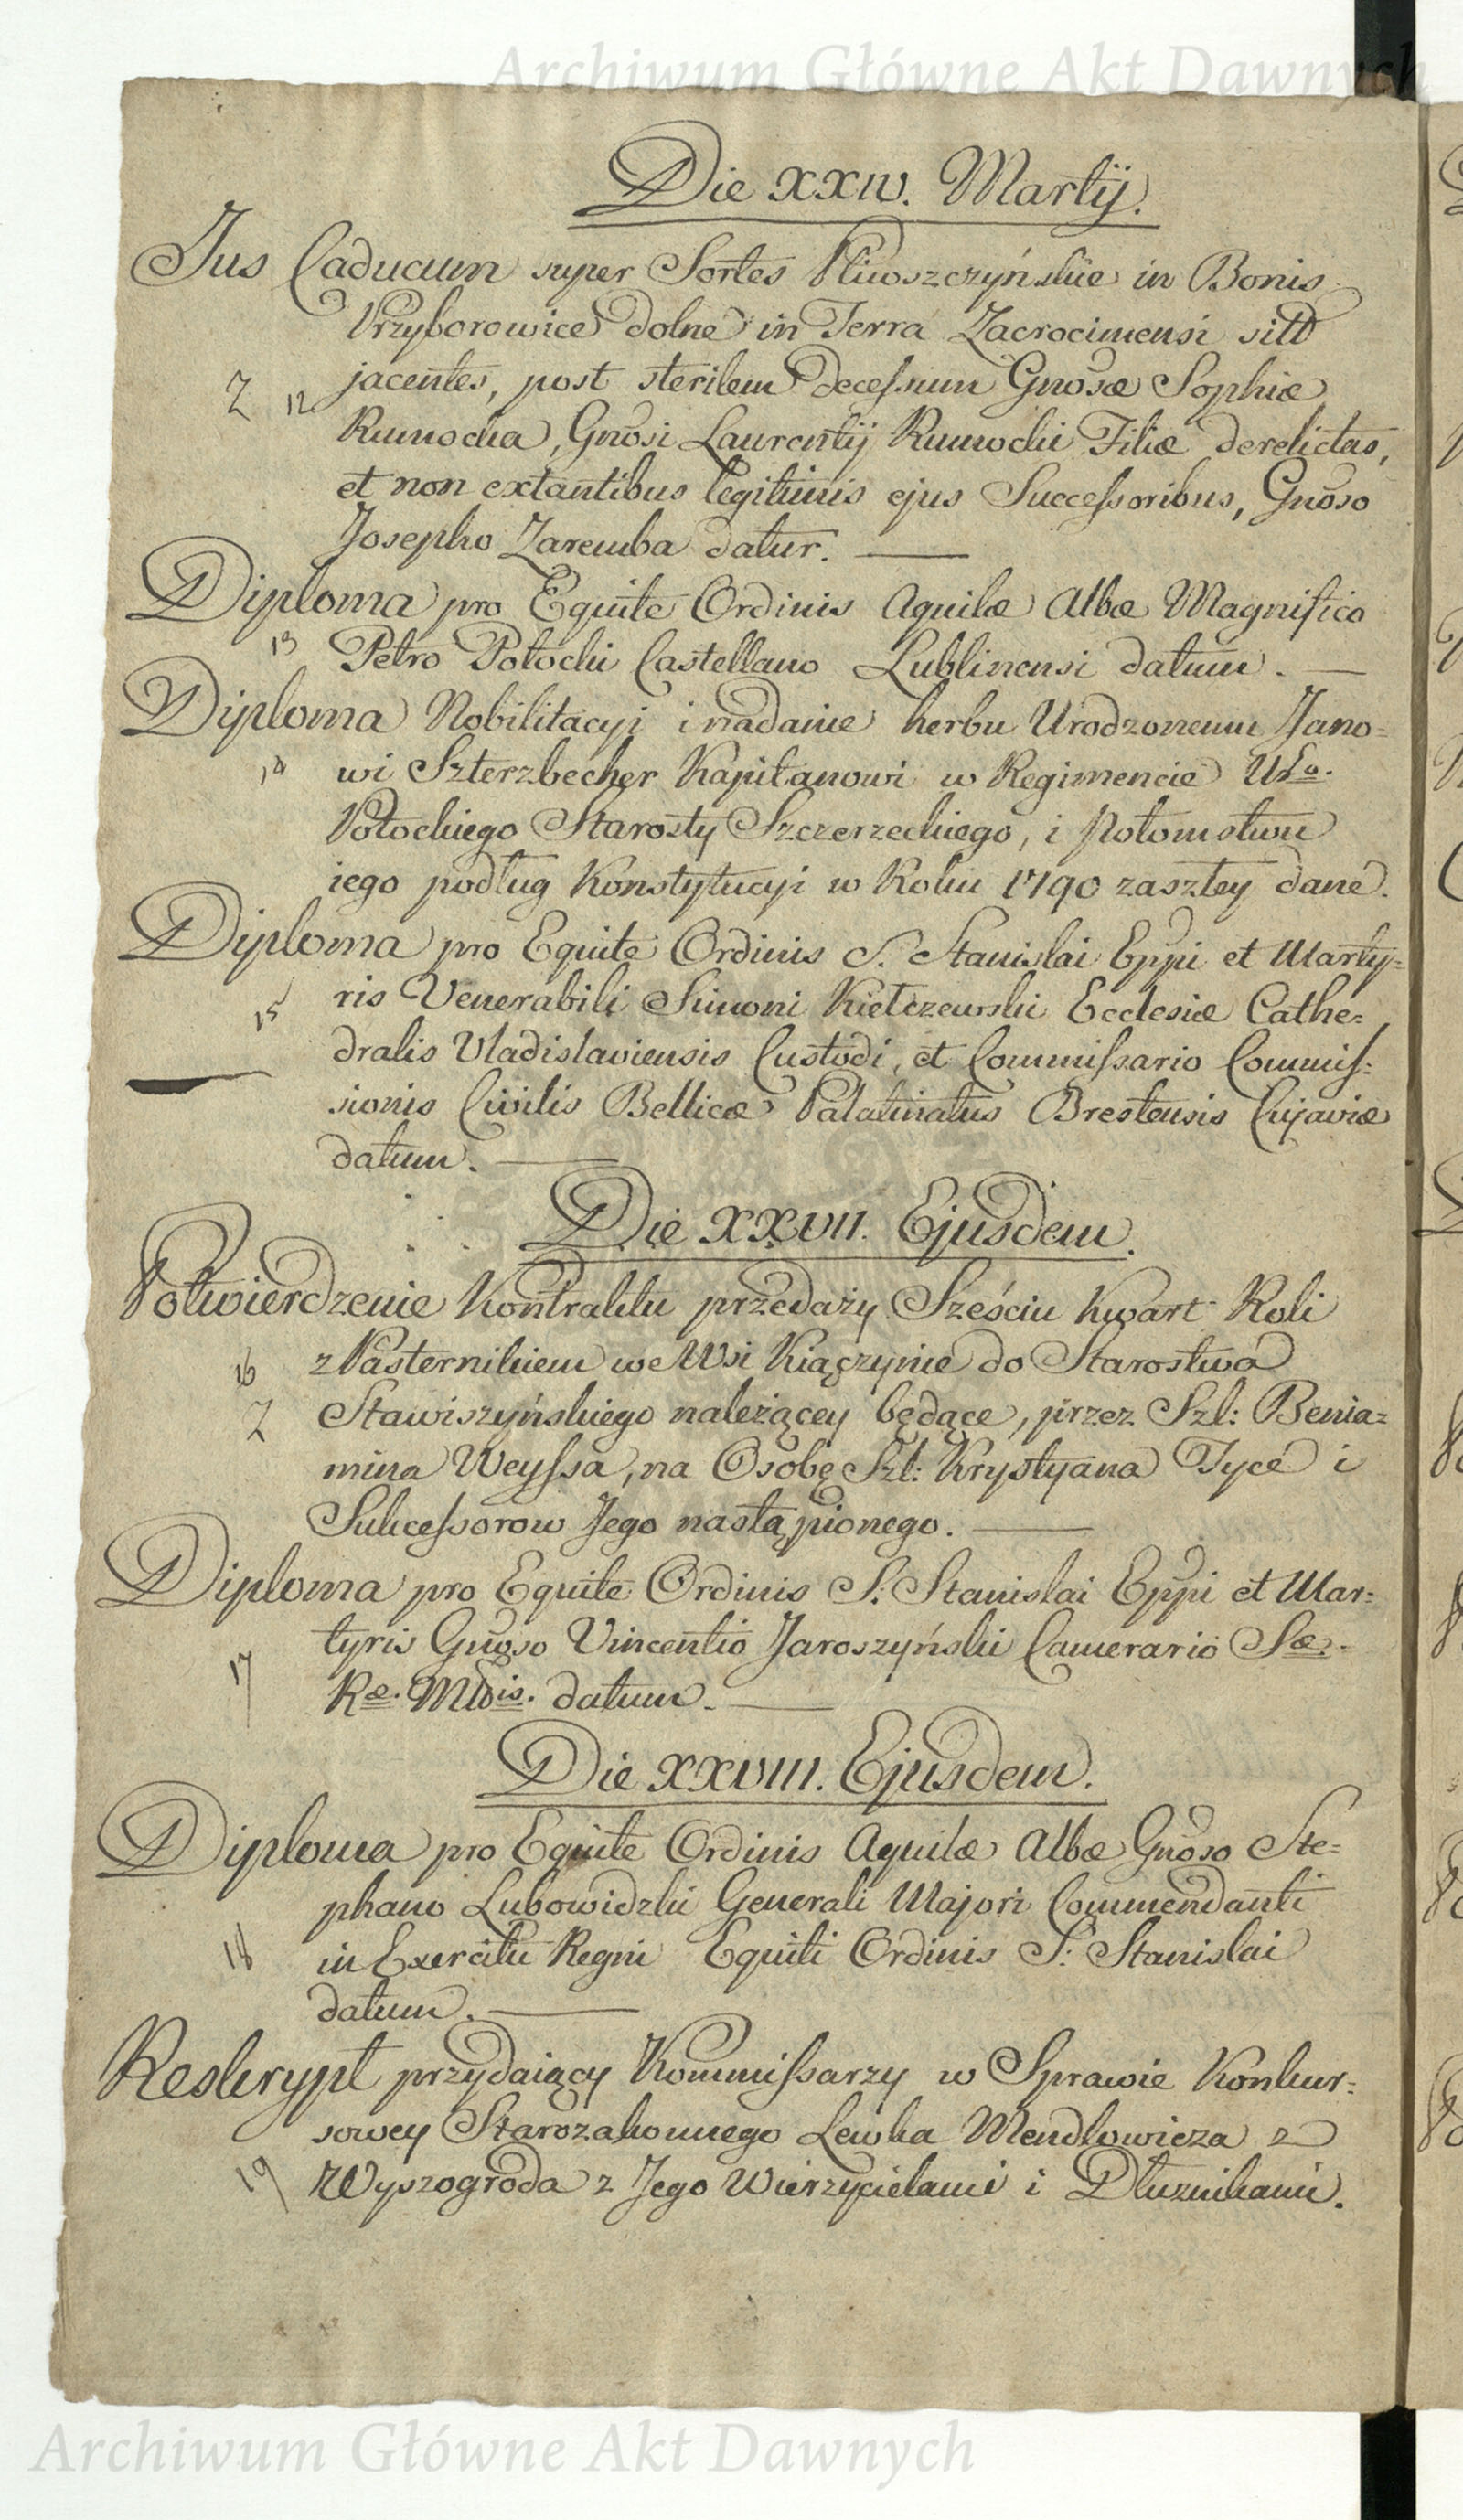 Archiwum Główne Akt Dawnych
Die XXIV. Martij.
Jus Caducum super Sortes Pliwoszczyńskie in Bonis
Przyborowice dolne in Terra Zacrocimensi
jacentes, post sterilem decessum Gnosæ Sophiæ
Z 12
Rumocka, Gnosi Laurentij Rumocki Filiæ derelictas,
et non extantibus legitimis ejus Successoribus, Gnoso
Josepho Zaremba datur.
Diploma pro Equite Ordinis Aquilæ Albæ Magnifico
13 Petro Potocki Castellano Lublinensi datum.
Diploma Nobilitacyi i nadanie herbu Urodzonemu Jano=
14 wi Szterzbecher Kapitanowi w Regimencie
Potockiego Starosty Szczerzeckiego, i Potomstwu
iego podług Konstytucyi w Roku 1790 zaszłey dane.
Diploma pro Equite Ordinis S. Stanislai Eppi et Marty=
15 ris Venerabili Simoni Kiełczewski Ecclesiæ Cathe=
dralis Vladislaviensis Custodi, et Commissario Commis=
sionis Civilis Bellicæ Palatinatus Brestensis Cujaviæ
datum.
Die XXVII. Ejusdem.
Potwierdzenie Kontraktu przedaży Sześciu Kwart Roli
16 z Pasternikiem we Wsi Kiączynie do Starostwa
Z Stawiszyńskiego należącey będące, przez Szl: Benia=
mina Weyssa, na Osobę Szl: Krystyana Tyce i
Sukcessorow Jego nastąpionego.
Diploma pro Equite Ordinis S. Stanislai Eppi et Mar=
tyris Gnoso Vincentio Jaroszyński Camerario Sæ.
17 Ræ. Mttis. datum.
Die XXVIII. Ejusdem.
Diploma pro Equite Ordinis Aquilæ Albæ Gnoso Ste=
phano Lubowidzki Generali Majori Commendanti
18 in Exercitu Regni Equiti Ordinis S. Stanislai
datum.
Reskrypt przydaiący Kommissarzy w Sprawie Konkur=
sowey Starozakonnego Lewka Mendlowicza z
19 Wyszogroda z Jego Wierzycielami i Dłużnikami.
Archiwum Główne Akt Dawnych